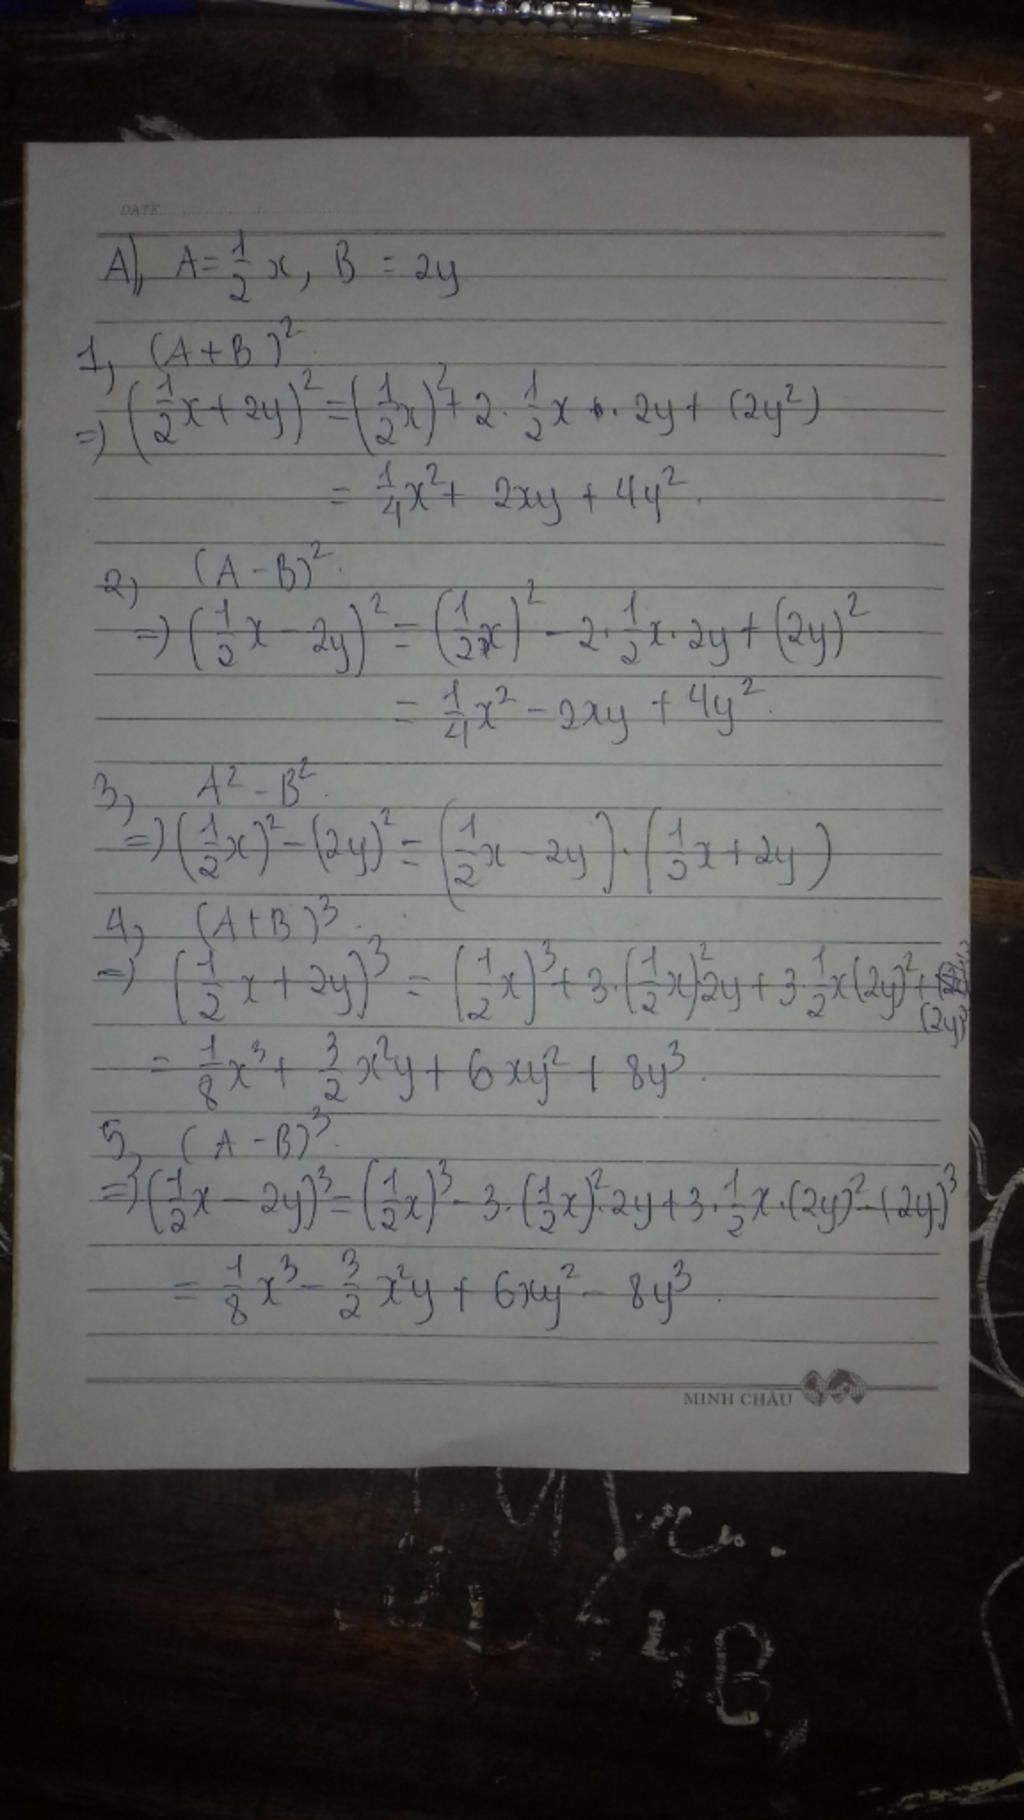 DATE
A), A = 1/2 x, B = 2y
1, (A+B)²
=> (1/2 x + 2y)² = (1/2 x)² + 2 · 1/2 x · 2y + (2y²)
= 1/4 x² + 2xy + 4y².
2, (A-B)².
=> (1/2 x - 2y)² = (1/2 x)² - 2 · 1/2 x · 2y + (2y)²
= 1/4 x² - 2xy + 4y².
3, A² - B².
=> (1/2 x)² - (2y)² = (1/2 x - 2y) · (1/2 x + 2y)
4, (A+B)³.
=> (1/2 x + 2y)³ = (1/2 x)³ + 3 · (1/2 x)² 2y + 3 · 1/2 x (2y)² +
(2y)³
= 1/8 x³ + 3/2 x²y + 6xy² + 8y³.
5, (A-B)³.
=> (1/2 x - 2y)³ = (1/2 x)³ - 3 · (1/2 x)² · 2y + 3 · 1/2 x · (2y)² - (2y)³
= 1/8 x³ - 3/2 x²y + 6xy² - 8y³.
MINH CHÂU
B